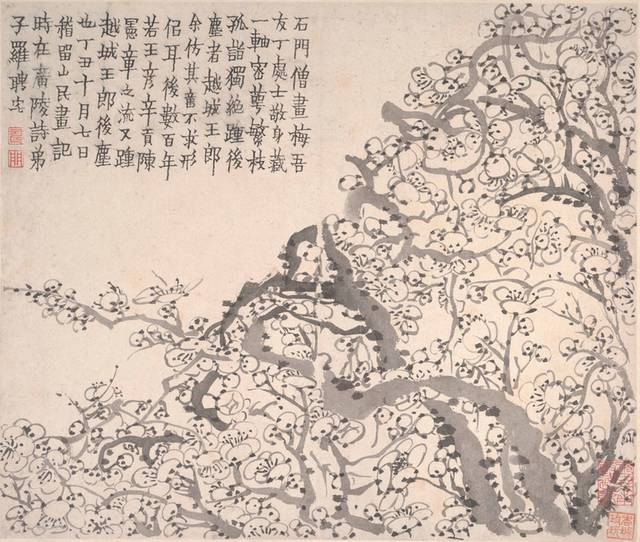 石門僧畫梅吾
友丁處士敬身藏
一軸密萼繁枝
孤詣獨絕踵後
塵者越城王郎
余仿其意不求形
侶耳後數百年
若王彥章貢陳
憲章之流又踵
越城王郎後塵
也丁丑十月七日
稽留山民畫記
時在廣陵詩弟
子羅聘